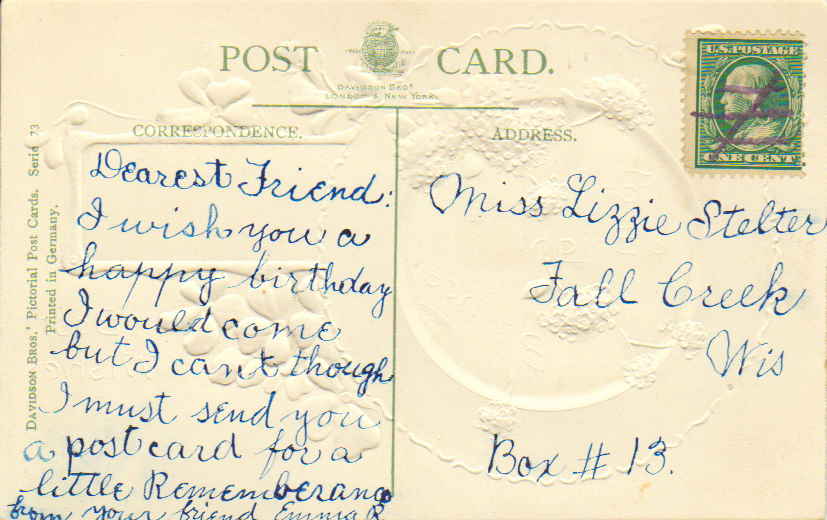 POST CARD.
DAVIDSON BROS
LONDON & NEW YORK
U.S. POSTAGE
ONE CENT
CORRESPONDENCE.
ADDRESS.
DAVIDSON BROS.' Pictorial Post Cards. Serie 73
Printed in Germany.
Dearest Friend:
I wish you a
happy birthday
I would come
but I can't though
I must send you
a postcard for a
little Rememberance
from your friend Emma R.
Miss Lizzie Stelter
Fall Creek
Wis
Box # 13.